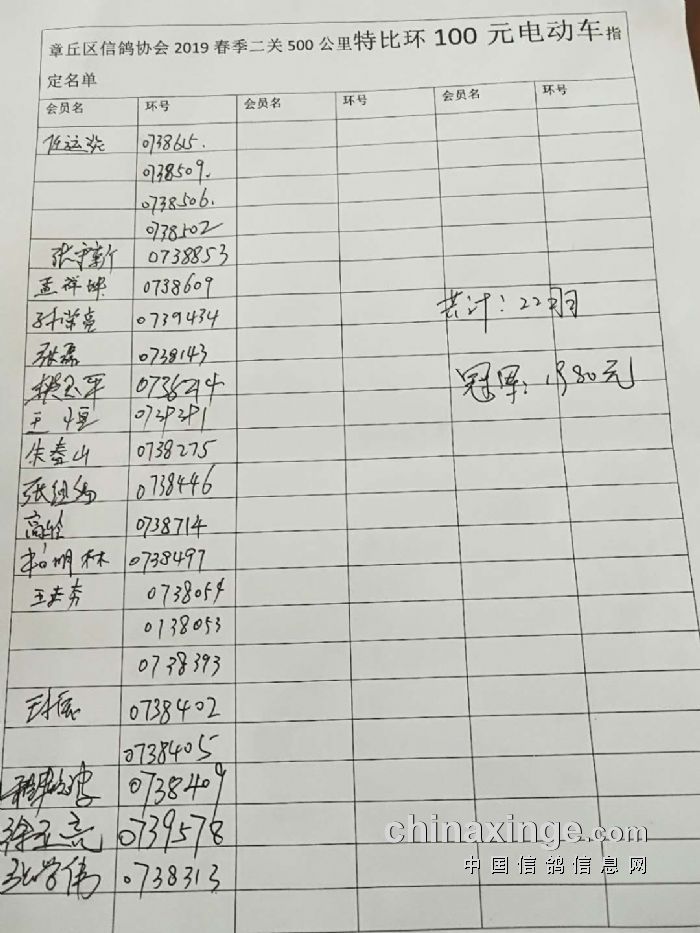 章丘区信鸽协会2019春季二关500公里特比环100元电动车指
定名单
会员名 环号 会员名 环号 会员名 环号
0738615.
0738509.
0738506.
0738502
张宇新 0738853
孟祥坤 0738609
孙荣亮 0739434
共计:22羽
张磊 0738143
0736214
冠军:1980元
王恒
朱春山 0738275
0738446
0738714
柏明林 0738497
0738054
0138053
0738393
0738402
0738405
0738409
徐亚亮 0739578
张学伟 0738313
chinaxinge.com
中国信鸽信息网